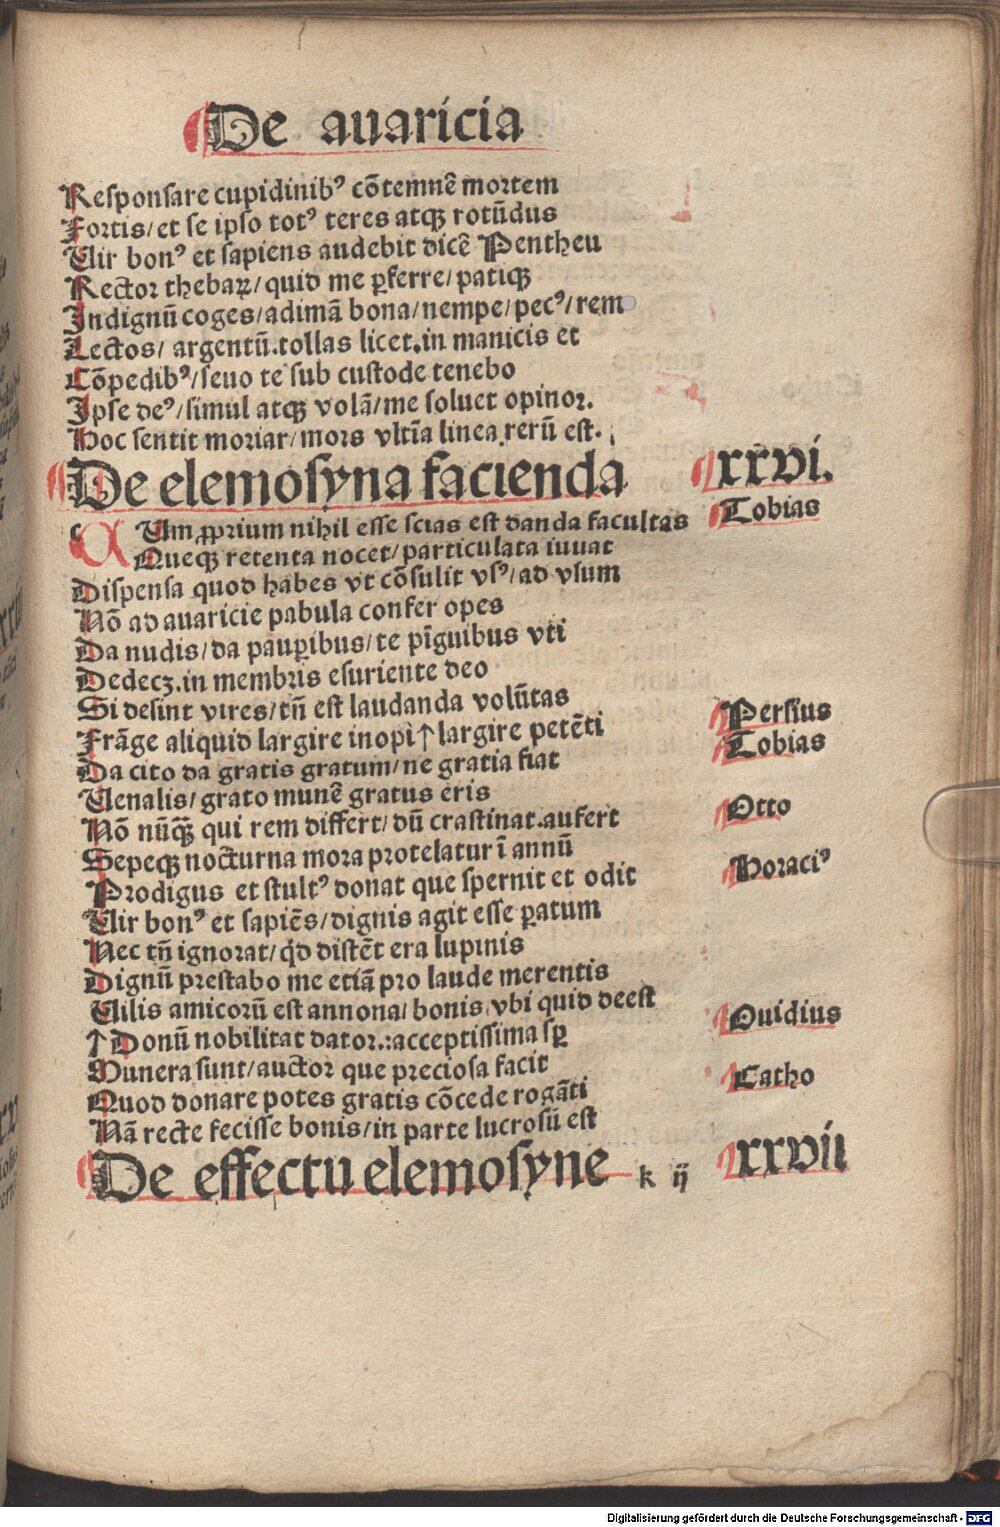 De avaricia
Responsare cupidinibꝰ cõtemnẽ mortem
Fortis/et se ipso totꝰ teres atqꝫ rotũdus
Uir bonꝰ et sapiens audebit dicẽ Pentheu
Rector thebaꝝ/quid me ꝑferre/patiqꝫ
Indignũ coges/adimã bona/nempe/pecꝰ/rem
Lectos/ argentũ.tollas licet.in manicis et
Cõpedibꝰ/seuo te sub custode tenebo
Ipse deꝰ/simul atqꝫ volã/me soluet opinor.
Hoc sentit moriar/mors vltĩa linea rerũ est.
De elemosyna facienda xxvi.
c Um ꝓprium nihil esse scias est danda facultas Tobias
Queqꝫ retenta nocet/particulata iuuat
Dispensa quod habes vt cõsulit vsꝰ/ad vsum
Nõ ad auaricie pabula confer opes
Da nudis/da pauꝑibus/te pĩguibus vti
Dedecꝫ.in membris esuriente deo
Si desint vires/tñ est laudanda volũtas
Frãge aliquid largire inopi↑largire petẽti Persius
Da cito da gratis gratum/ne gratia fiat Tobias
Uenalis/grato munẽ gratus eris
Nõ nũqꝫ̃ qui rem differt/dũ crastinat.aufert Otto
Sepeqꝫ nocturna mora protelatur ĩ annũ
Prodigus et stultꝰ donat que spernit et odit Horaciꝰ
Uir bonꝰ et sapiẽs/dignis agit esse ꝑatum
Nec tñ ignorat/qd̛ distẽt era lupinis
Dignũ prestabo me etiã pro laude merentis
Uilis amicorũ est annona/bonis vbi quid deest
↑Donũ nobilitat dator.:acceptissima sꝑ Ouidius
Munera sunt/auctor que preciosa facit
Quod donare potes gratis cõcede rogãti Catho
Nã recte fecisse bonis/in parte lucrosũ est
De effectu elemosyne k ij xxvii
Digitalisierung gefördert durch die Deutsche Forschungsgemeinschaft - DFG